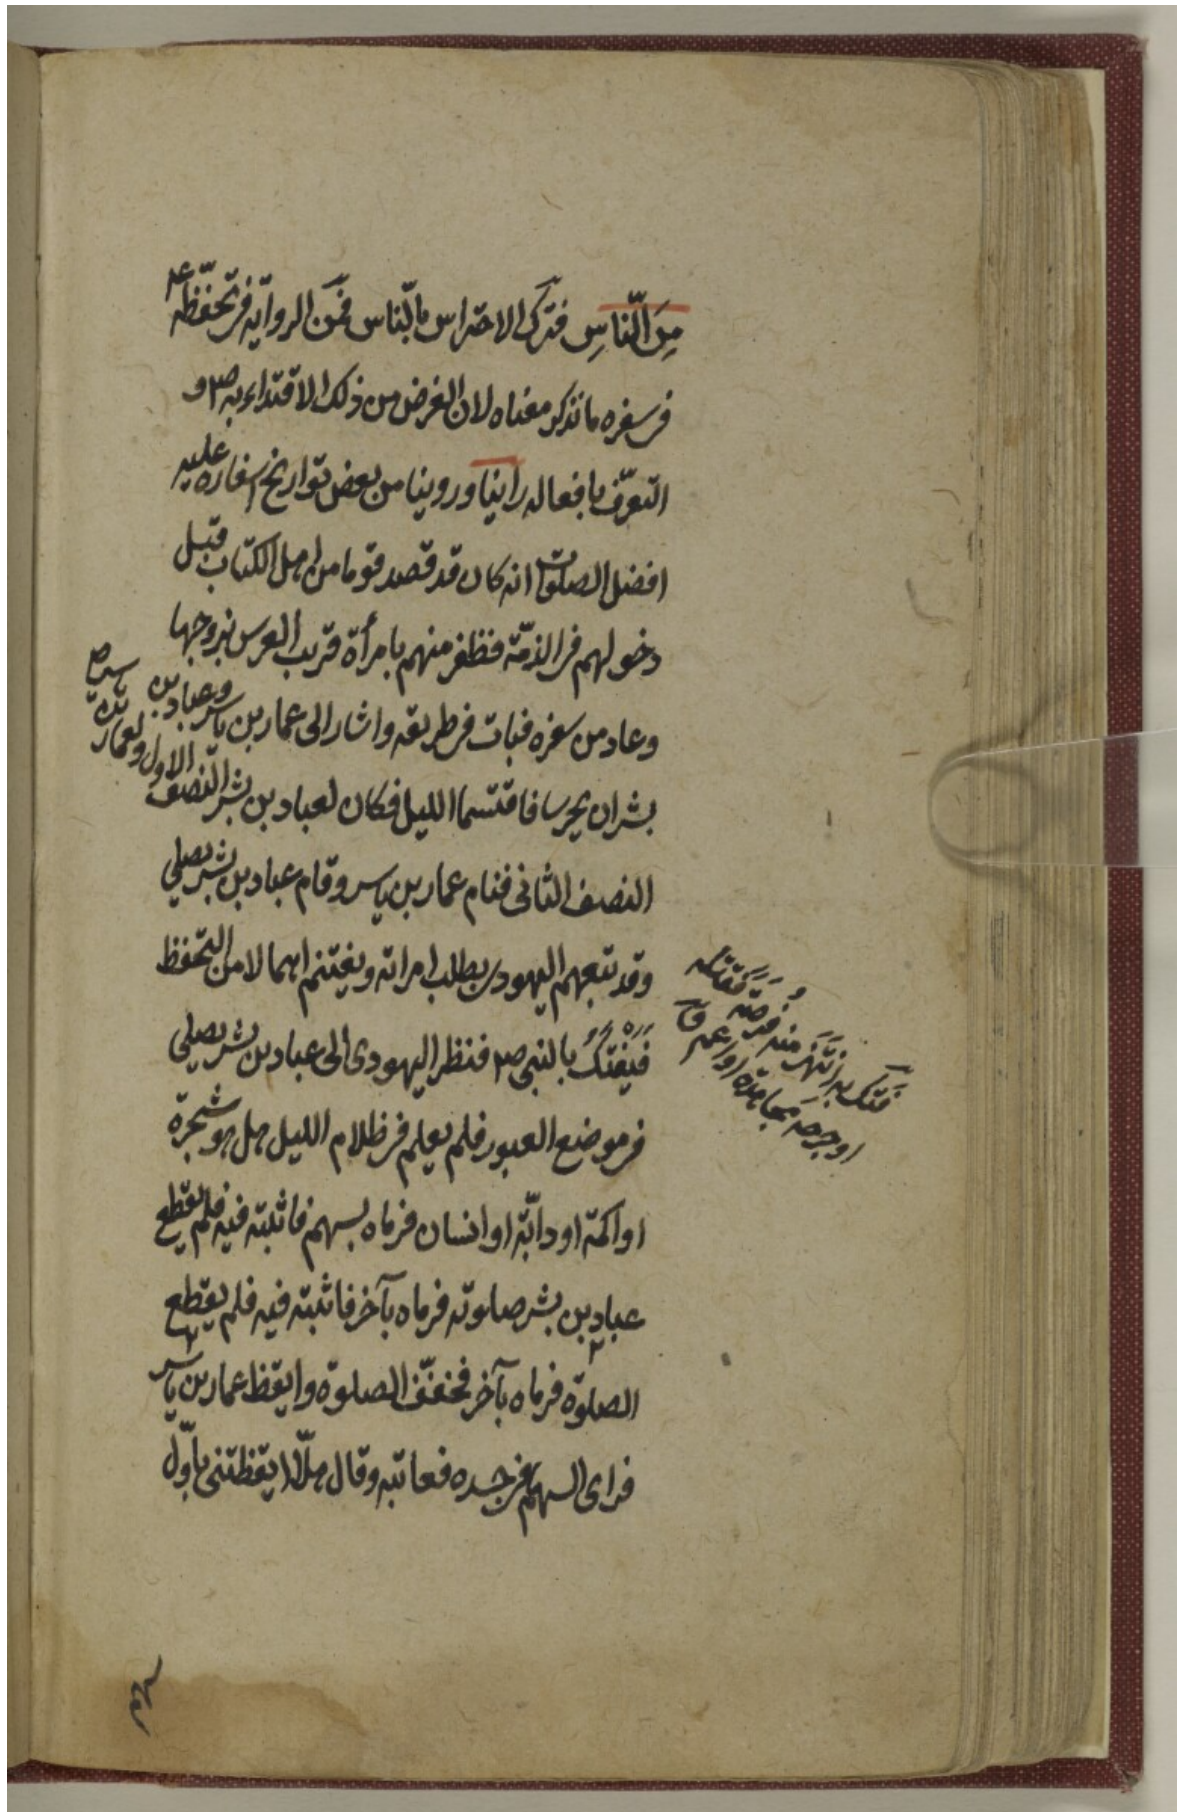 مِنَ النّاسِ فترك الاحتراس بالنّاس فمن الرواية فى تحفّظه ع
فى سفره ما نذكر معناه لان الغرض من ذلك الاقتداء به ص و
التعرّف بافعاله راينا وروينا من بعض تواريخ اسفاره عليه
افضل الصلوات انه كان قد قصد قوما من اهل الكتاب قبل
دخولهم فى الذمّة فظفر منهم بامرأة قريب العرس بزوجها
وعاد من سفره فبات فى طريقه واشار الى عمار بن ياسر وعباد بن
بشر ان يحرسا فاقتسما الليل فكان لعباد بن بشر النصف الاول ولعمار بن ياسر
النصف الثانى فنام عمار بن ياسر وقام عباد بن بشر يصلي
وقد تبعهم اليهودى يطلب امراته ويغتنم اهمالا من التحفظ
فيفتك بالنبي ص فنظر اليهودى الى عباد بن بشر يصلي
فى موضع العبور فلم يعلم فى ظلام الليل هل هو شجرة
او اكمة او دابّة او انسان فرماه بسهم فاثبته فيه فلم يقطع
عباد بن بشر صلوته فرماه بآخر فاثبته فيه فلم يقطع
الصلوة فرماه بآخر فخفّف الصلوة وايقظ عمار بن ياسر
فراى السهم فى جسده فعاتبه وقال هلّا ايقظتنى باوّل
فتك به انتهز منه فرصة فقتله
او جرحه مجاهرة او اعم ق
سهم